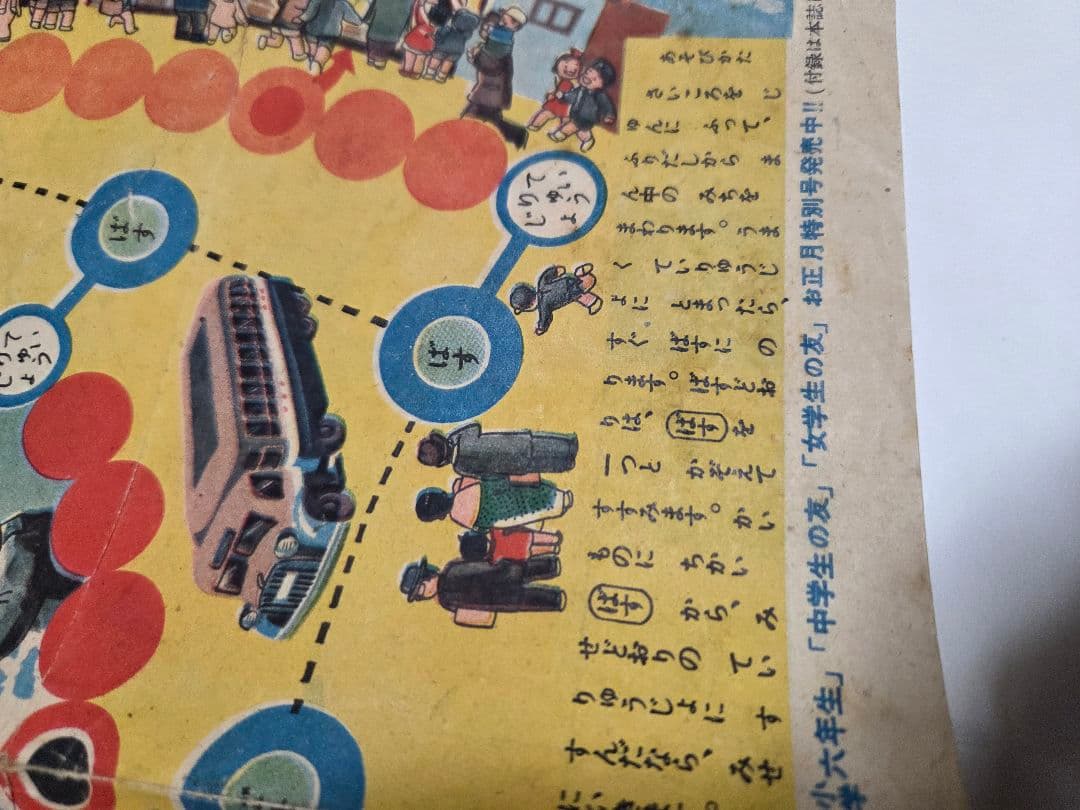 あそびかた
さいころを じ
ゅんに ふって、
ふりだしから ま
ん中の みちを
まわります。うま
く ていりゅうじ
ょに とまったら、
すぐ、ばすに の
ります。ばすどお
りは、ばすを
一つと かぞえて
すすみます。かい
ものに ちかい
ばすから、み
せどおりの てい
りゅうじょに す
すんだなら、みせ
てい
りゅう
じょ
ばす
ばす
てい
りゅう
じょ
小学六年生」「中学生の友」「女学生の友」お正月特別号発売中!!(付録は本誌